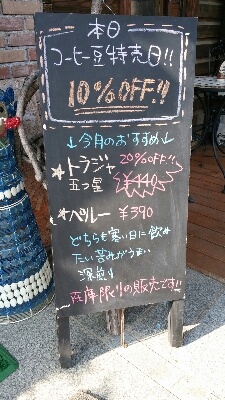 本日
コーヒー豆特売日!!
10%OFF!!
↓今月のおすすめ↓
★トラジャ 20%OFF!!
五つ星 ¥440
★ペルー ¥390
どちらも寒い日に飲み
たい苦みがうまい
深煎り
在庫限りの販売です!!